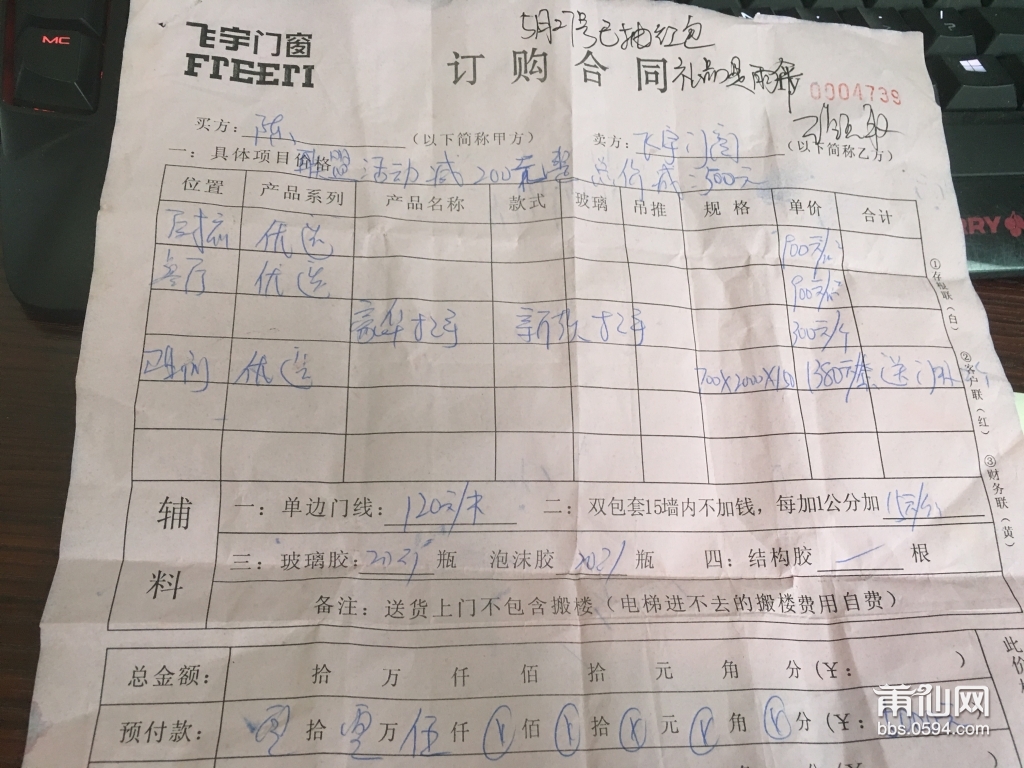 飞宇门窗
FTEETI
5月27号已抽红包
订购合同
礼品是雨伞
0004739
买方：陈
（以下简称甲方）
卖方：飞宇门窗
（以下简称乙方）
一：具体项目价格
活动减200元
总价减：500元
位置 产品系列 产品名称 款式 玻璃 吊推 规格 单价 合计
优选 900元/
客厅 优选 900元/
豪华拉手 新款拉手 300元/个
卫生间 优选 700X2000X150 1380元/套 送门
①存根联（白） ②客户联（红） ③财务联（黄）
辅料
一：单边门线：120元/木 二：双包套15墙内不加钱，每加1公分加15元/公分
三：玻璃胶：20元/瓶 泡沫胶20元/瓶 四：结构胶一根
备注：送货上门不包含搬楼（电梯进不去的搬楼费用自费）
总金额： 拾 万 仟 佰 拾 元 角 分（¥： ）
预付款：零拾零万伍仟 佰 拾 元 角 分（¥：
此价
莆仙网
bbs.0594.com